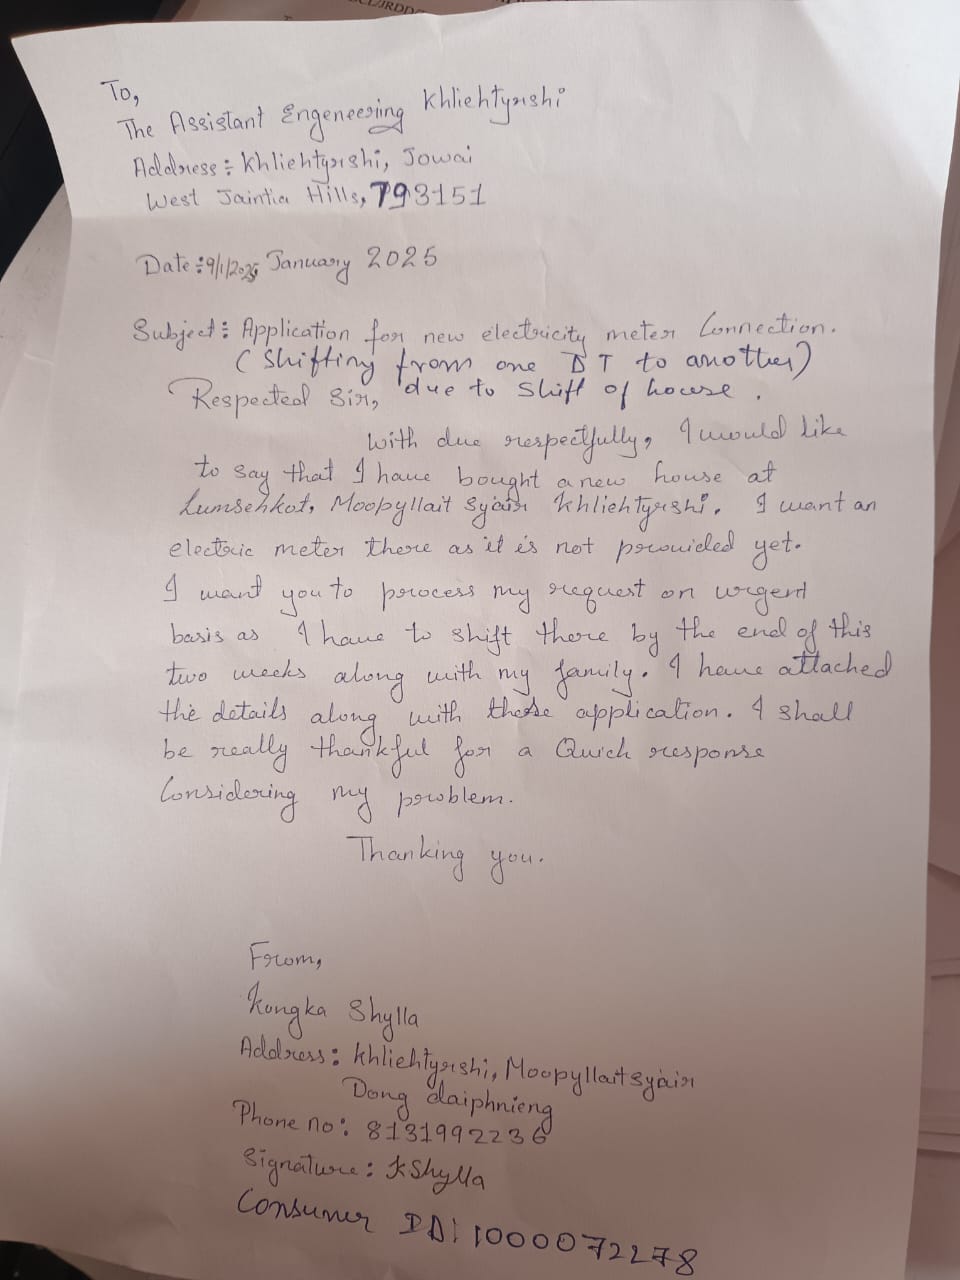 To,
The Assistant Engeneering Khliehtyrshi
Address : Khliehtyrshi, Jowai
West Jaintia Hills, 793151
Date : 9/1/2025 January 2025
Subject : Application for new electricity meter Connection.
(Shifting from one DT to another)
due to Shift of house.
Respected Sir,
With due respectfully, I would like
to say that I have bought a new house at
Lumsehkot, Moopyllait Syiair Khliehtyrshi. I want an
electric meter there as it is not provided yet.
I want you to process my request on urgent
basis as I have to shift there by the end of this
two weeks along with my family. I have attached
the details along with these application. I shall
be really thankful for a Quick response
Considering my problem.
Thanking you.
From,
Kongka Shylla
Address : Khliehtyrshi, Moopyllait Syiair
Dong daiphnieng
Phone no : 8131992236
Signature : KShylla
Consumer ID : 1000072278